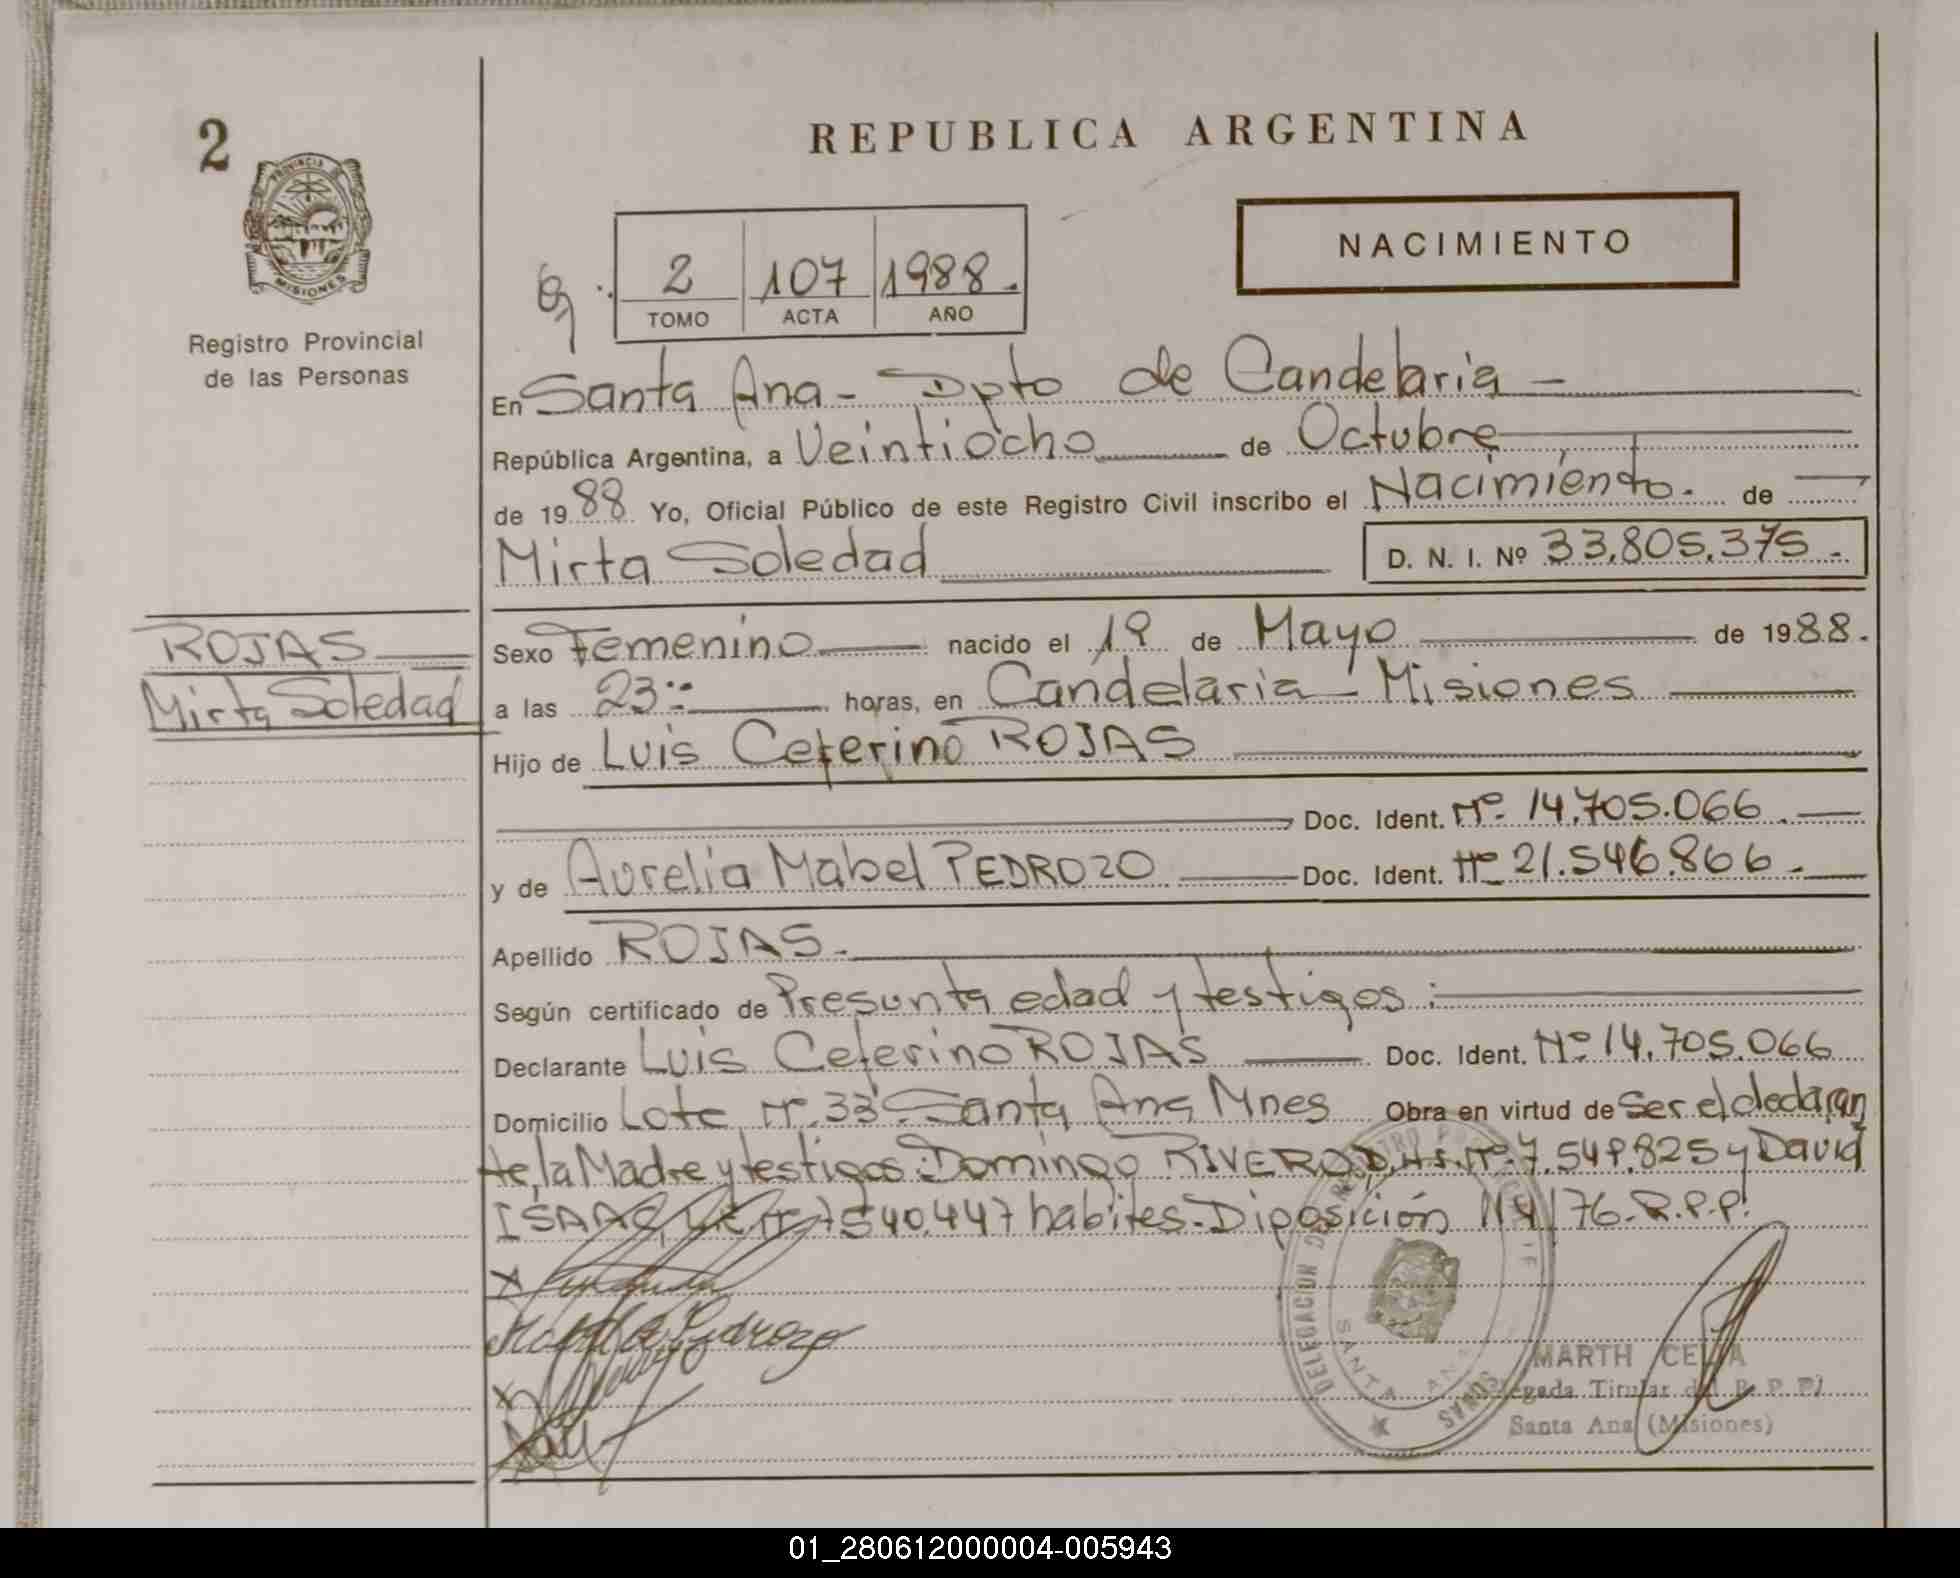 2
PROVINCIA DE
MISIONES
Registro Provincial
de las Personas
ROJAS
Mirta Soledad
REPUBLICA ARGENTINA
2 107 1988.
TOMO ACTA AÑO
NACIMIENTO
En Santa Ana - Dpto de Candelaria -
República Argentina, a Veintiocho de Octubre
de 1988 Yo, Oficial Público de este Registro Civil inscribo el Nacimiento. de
Mirta Soledad D. N. I. Nº 33.805.375.-
Sexo Femenino nacido el 19 de Mayo de 1988.
a las 23:- horas, en Candelaria - Misiones
Hijo de Luis Ceferino ROJAS
Doc. Ident. Nº 14.705.066
y de Aurelia Mabel PEDROZO Doc. Ident. Nº 21.546.866.-
Apellido ROJAS.-
Según certificado de Presunta edad y testigos:
Declarante Luis Ceferino ROJAS Doc. Ident. Nº 14.705.066
Domicilio Lote Nº 33 Santa Ana Mnes Obra en virtud de Ser el declaran
te, la Madre y testigos: Domingo RIVERO, Nº 7.549.825 y David
ISAAC, 7540.447 habites.- Diposición 114/76.R.P.P.
Pedrozo
DELEGACION DEL REGISTRO
SANTA ANA
MARTH CELIA
Delegada Titular del R. P. P.
Santa Ana (Misiones)
01_280612000004-005943